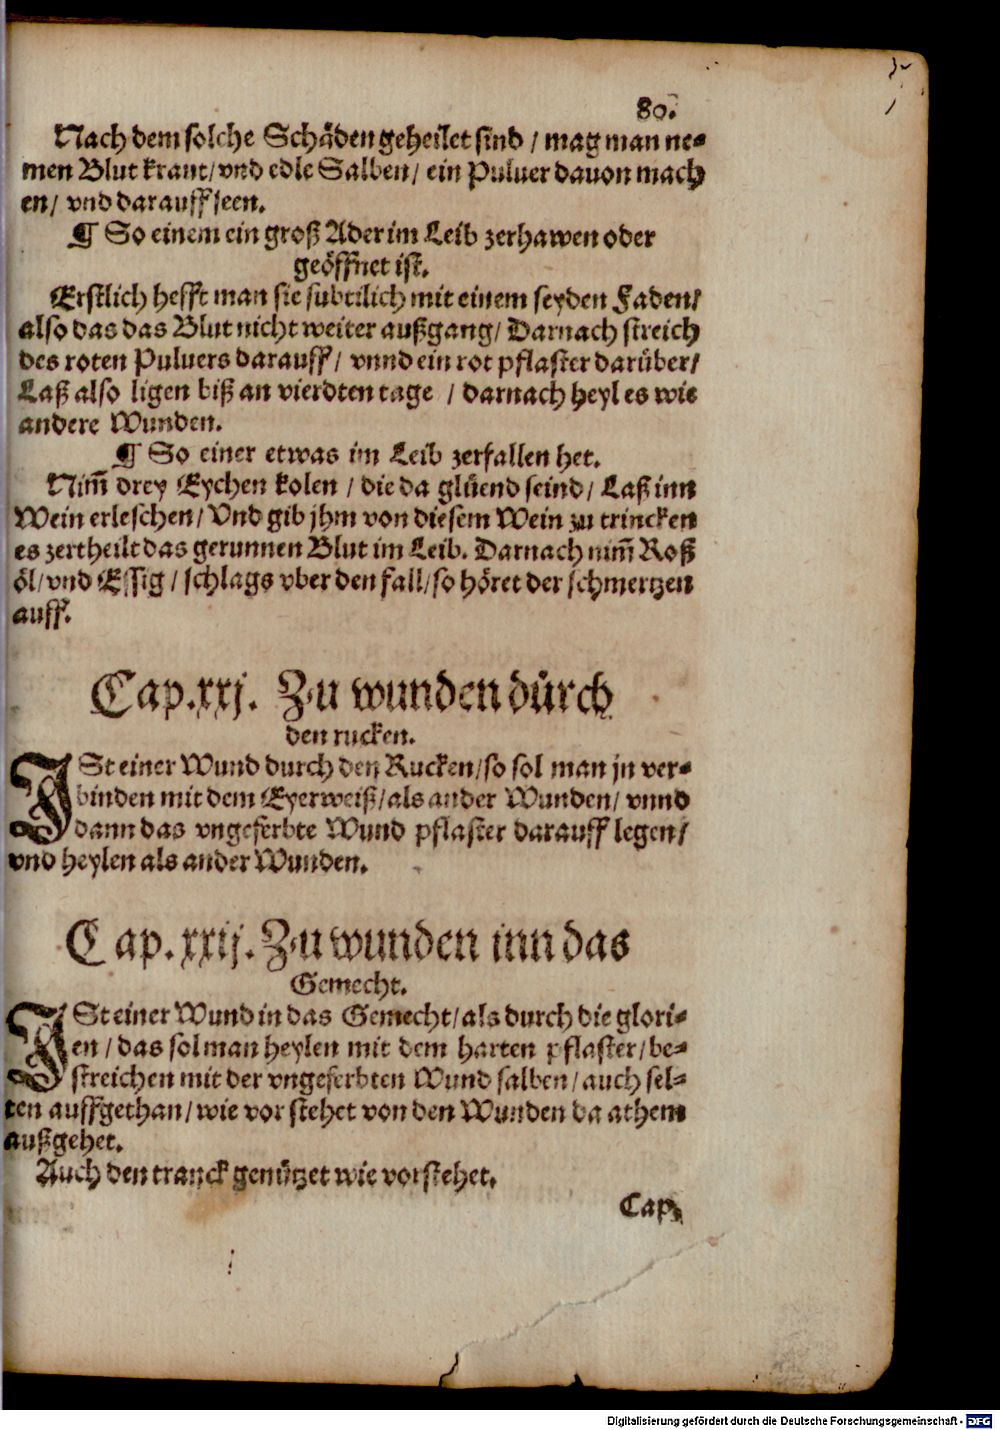 80.
Nach dem solche Schäden geheilet sind / mag man ne-
men Blut kraut / vnd edle Salben / ein Puluer dauon mach
en / vnd darauff seen.
¶ So einem ein groß Ader im Leib zerhawen oder
geöffnet ist.
Erstlich hefft man sie subtilich mit einem seyden Faden /
also das das Blut nicht weiter außgang / Darnach streich
des roten Puluers darauff / vnnd ein rot pflaster darüber /
Laß also ligen biß an vierdten tage / darnach heyl es wie
andere Wunden.
¶ So einer etwas im Leib zerfallen het.
Nim̃ drey Eychen kolen / die da glüend seind / Laß inn
Wein erleschen / Vnd gib jhm von diesem Wein zu trincken
es zertheilt das gerunnen Blut im Leib. Darnach nim̃ Roß
öl / vnd Essig / schlags vber den fall / so höret der schmertzen
auff.
Cap. xxj. Zu wunden dürch
den rucken.
ISt einer Wund durch den Rucken / so sol man jn ver-
binden mit dem Eyerweiß / als ander Wunden / vnnd
dann das vngeferbte Wund pflaster darauff legen /
vnd heylen als ander Wunden.
Cap. xxij. Zu wunden inn das
Gemecht.
ISt einer Wund in das Gemecht / als durch die glori-
en / das sol man heylen mit dem harten pflaster / be-
streichen mit der vngeferbten Wund salben / auch sel-
ten auffgethan / wie vor stehet von den Wunden da athem
außgehet.
Auch den tranck genützet wie vorstehet.
Cap.
Digitalisierung gefördert durch die Deutsche Forschungsgemeinschaft - DFG